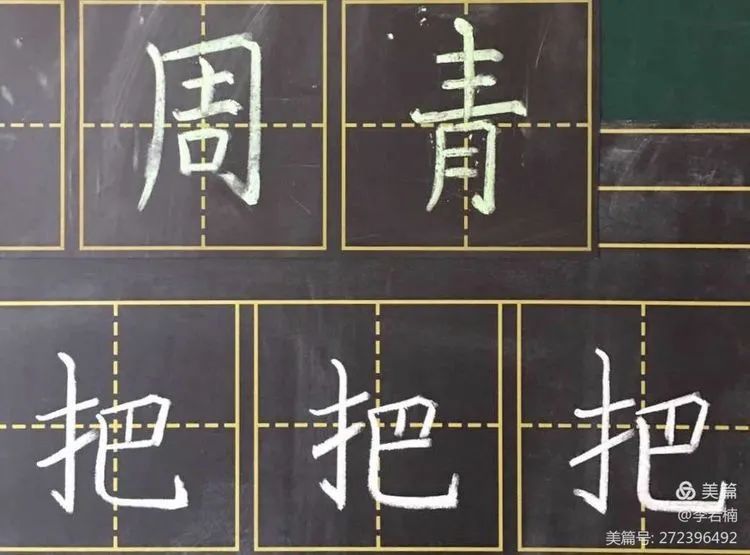 周青
把把把
美篇
@李若楠
美篇号: 272396492